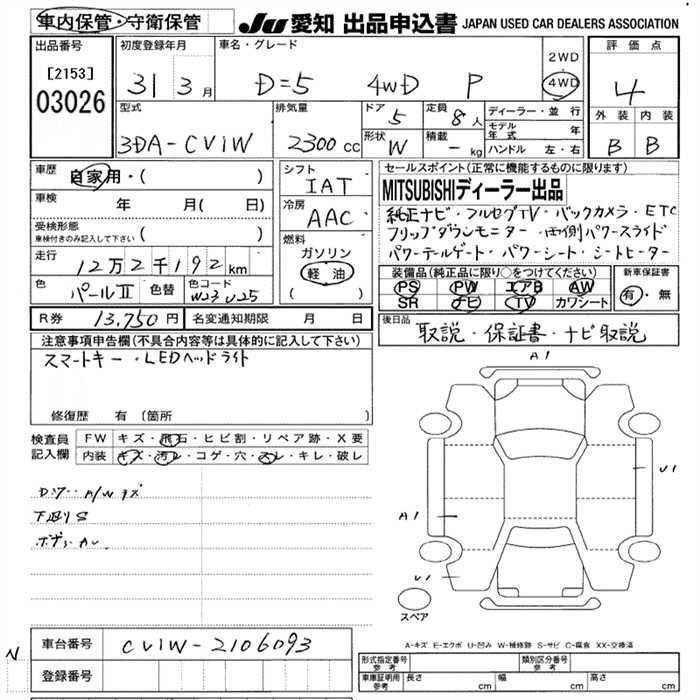 車内保管・守衛保管 JU 愛知 出品申込書 JAPAN USED CAR DEALERS ASSOCIATION
出品番号 初度登録年月 車名・グレード 2WD 評価点
[2153] 31 3月 D=5 4WD P 4WD 4
03026
型式 排気量 ドア 5 定員 8人 ディーラー・並行 外装 内装
3DA-CV1W 2300cc 形状 W 積載 - kg モデル年式 年 B B
ハンドル 左・右
車歴 自家用・( ) シフト IAT セールスポイント(正常に機能するものに限ります)
車検 年 月( 日) 冷房 AAC MITSUBISHIディーラー出品
受検形態 純正ナビ・フルセグTV・バックカメラ・ETC
車検付きのみ記入して下さい ( ) 燃料 フリップダウンモニター・両側パワースライド
走行 12万2千192km ガソリン パワーテールゲート・パワーシート・シートヒーター
色 パールⅡ 色替 色コード W23 U25 軽油 ( )
装備品(純正品に限り○をつけてください) 新車保証書
PS PW エアB AW 有・無
SR ナビ TV カワシート
R券 13,750円 名変通知期限 月 日 後日品 取説・保証書・ナビ取説
注意事項申告欄(不具合内容等は具体的に記入して下さい)
スマートキー・LEDヘッドライト
A1
修復歴 有(箇所 )
検査員記入欄 FW キズ・飛石・ヒビ割・リペア跡・X要
内装 キズ・汚レ・コゲ・穴・スレ・キレ・破レ
U1
A1
下廻りS
U1
スペア
A-キズ E-エクボ U-凹み W-補修跡 S-サビ C-腐食 XX-交換済
N 車台番号 CV1W-2106093
登録番号
形式指定番号参考 類別区分番号参考
車庫証明用参考 長さ cm 幅 cm 高さ cm